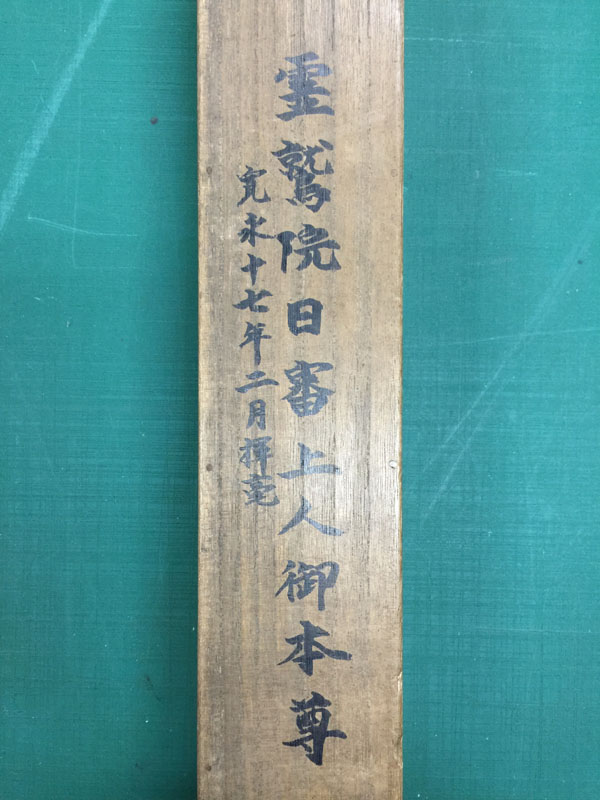 霊鷲院日審上人御本尊
寛永十七年二月揮毫